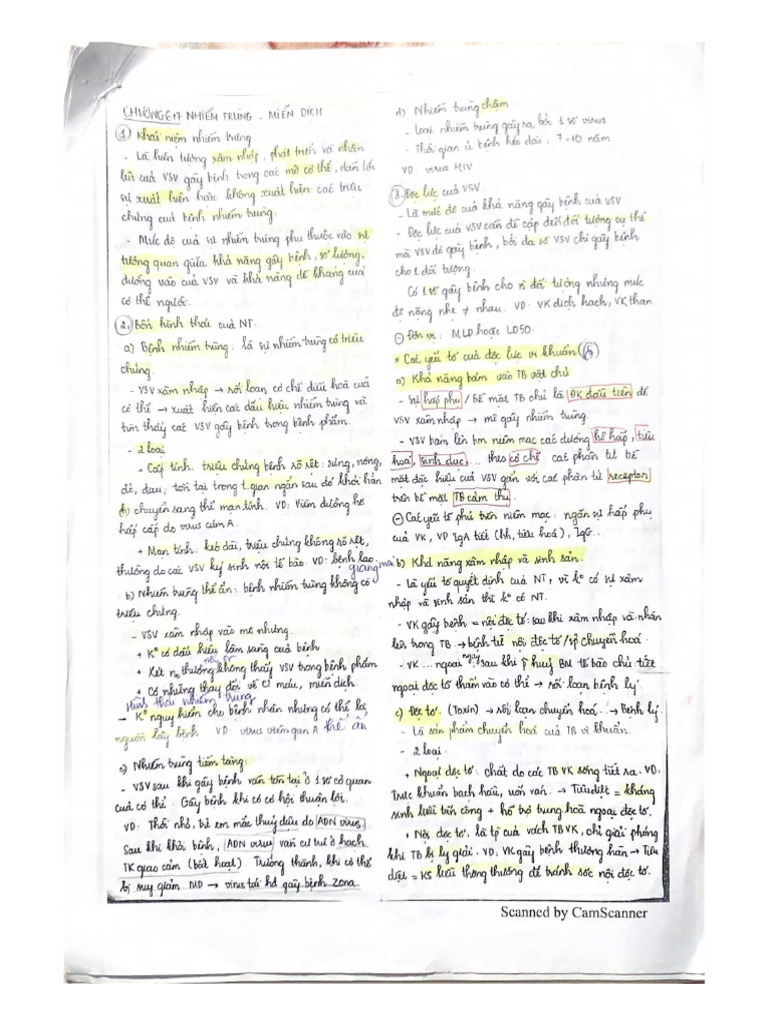 CHƯƠNG 6+7 NHIỄM TRÙNG - MIỄN DỊCH
1) Khái niệm nhiễm trùng.
- Là hiện tượng xâm nhập, phát triển và nhân
lên của VSV gây bệnh trong các mô cơ thể, dẫn tới
sự xuất hiện hoặc không xuất hiện các triệu
chứng của bệnh nhiễm trùng.
- Mức độ của sự nhiễm trùng phụ thuộc vào sự
tương quan giữa khả năng gây bệnh, số lượng,
đường vào của VSV và khả năng đề kháng của
cơ thể người.
2. Bốn hình thái của NT.
a) Bệnh nhiễm trùng: là sự nhiễm trùng có triệu
chứng.
- VSV xâm nhập → rối loạn cơ chế điều hoà của
cơ thể → xuất hiện các dấu hiệu nhiễm trùng và
tìm thấy các VSV gây bệnh trong bệnh phẩm.
- 2 loại
+ Cấp tính: triệu chứng bệnh rõ rệt: sưng, nóng,
đỏ, đau; tồn tại trong t.gian ngắn sau đó khỏi hẳn
chuyển sang thể mạn tính. VD: Viêm đường hô
hấp cấp do virus cúm A.
+ Mạn tính: kéo dài, triệu chứng không rõ rệt,
thường do các VSV ký sinh nội tế bào. VD: bệnh lao,
giang mai
b) Nhiễm trùng thể ẩn: bệnh nhiễm trùng không có
triệu chứng.
- VSV xâm nhập vào mô nhưng.
+ K° có dấu hiệu lâm sàng của bệnh
+ Xét n° thường không thấy VSV trong bệnh phẩm
+ Có những thay đổi về CT máu, miễn dịch.
Hình thái nhiễm trùng
- K° nguy hiểm cho bệnh nhân nhưng có thể là
nguồn lây bệnh VD: virus viêm gan A thể ẩn
c) Nhiễm trùng tiềm tàng:
- VSV sau khi gây bệnh vẫn tồn tại ở 1 số cơ quan
của cơ thể. Gây bệnh khi có cơ hội thuận lợi.
VD: Thời nhỏ, trẻ em mắc thuỷ đậu do ADN virus,
Sau khi khỏi bệnh, ADN virus vẫn cư trú ở hạch
TK giao cảm (bất hoạt). Trưởng thành, khi cơ thể
bị suy giảm MD → virus tái hđ gây bệnh Zona.
d) Nhiễm trùng chậm
- Loại nhiễm trùng gây ra bởi 1 số virus
- Thời gian ủ bệnh kéo dài, 7-10 năm
VD. virus HIV
3. Độc lực của VSV.
- Là mức độ của khả năng gây bệnh của VSV
- Độc lực của VSV cần đề cập đến đối tượng cụ thể
mà VSV đó gây bệnh, bởi đa số VSV chỉ gây bệnh
cho 1 đối tượng.
Có 1 số gây bệnh cho n đối tượng nhưng mức
độ nặng nhẹ ≠ nhau. VD: VK dịch hạch, VK than
⊖ Đơn vị: MLD hoặc LD50.
* Các yếu tố của độc lực vi khuẩn
a) Khả năng bám vào TB vật chủ
- Sự hấp phụ / bề mặt TB chủ là ĐK đầu tiên để
VSV xâm nhập → mô gây nhiễm trùng
- VSV bám lên bm niêm mạc các đường hô hấp, tiêu
hoá, sinh dục, ... theo cơ chế các phân tử bề
mặt đặc hiệu của VSV gắn với các phân tử receptor
trên bề mặt TB cảm thụ.
⊖ Các yếu tố phủ trên niêm mạc: ngăn sự hấp phụ
của VK, VD IgA tiết (hh, tiêu hoá), IgG...
b) Khả năng xâm nhập và sinh sản.
- Là yếu tố quyết định của NT, vì k° có sự xâm
nhập và sinh sản thì k° có NT.
- VK gây bệnh = nội độc tố: sau khi xâm nhập và nhân
lên trong TB → bệnh từ nội độc tố / sp chuyển hoá.
- VK ... ngoại ngay sau khi phá huỷ BM tế bào chủ tiết
ngoại độc tố thấm vào cơ thể → rối loạn bệnh lý
c) Độc tố. (Toxin) → rối loạn chuyển hoá ... → Bệnh lý.
- Là sản phẩm chuyển hoá của TB vi khuẩn.
- 2 loại.
+ Ngoại độc tố: chất do các TB VK sống tiết ra. VD.
Trực khuẩn bạch hầu, uốn ván. → Tiêu diệt = kháng
sinh liều tấn công + hỗ trợ trung hoà ngoại độc tố.
+ Nội độc tố: là tp của vách TB VK, chỉ giải phóng
khi TB bị ly giải. VD, VK gây bệnh thương hàn → Tiêu
diệt = KS liều thông thường để tránh sốc nội độc tố.
Scanned by CamScanner